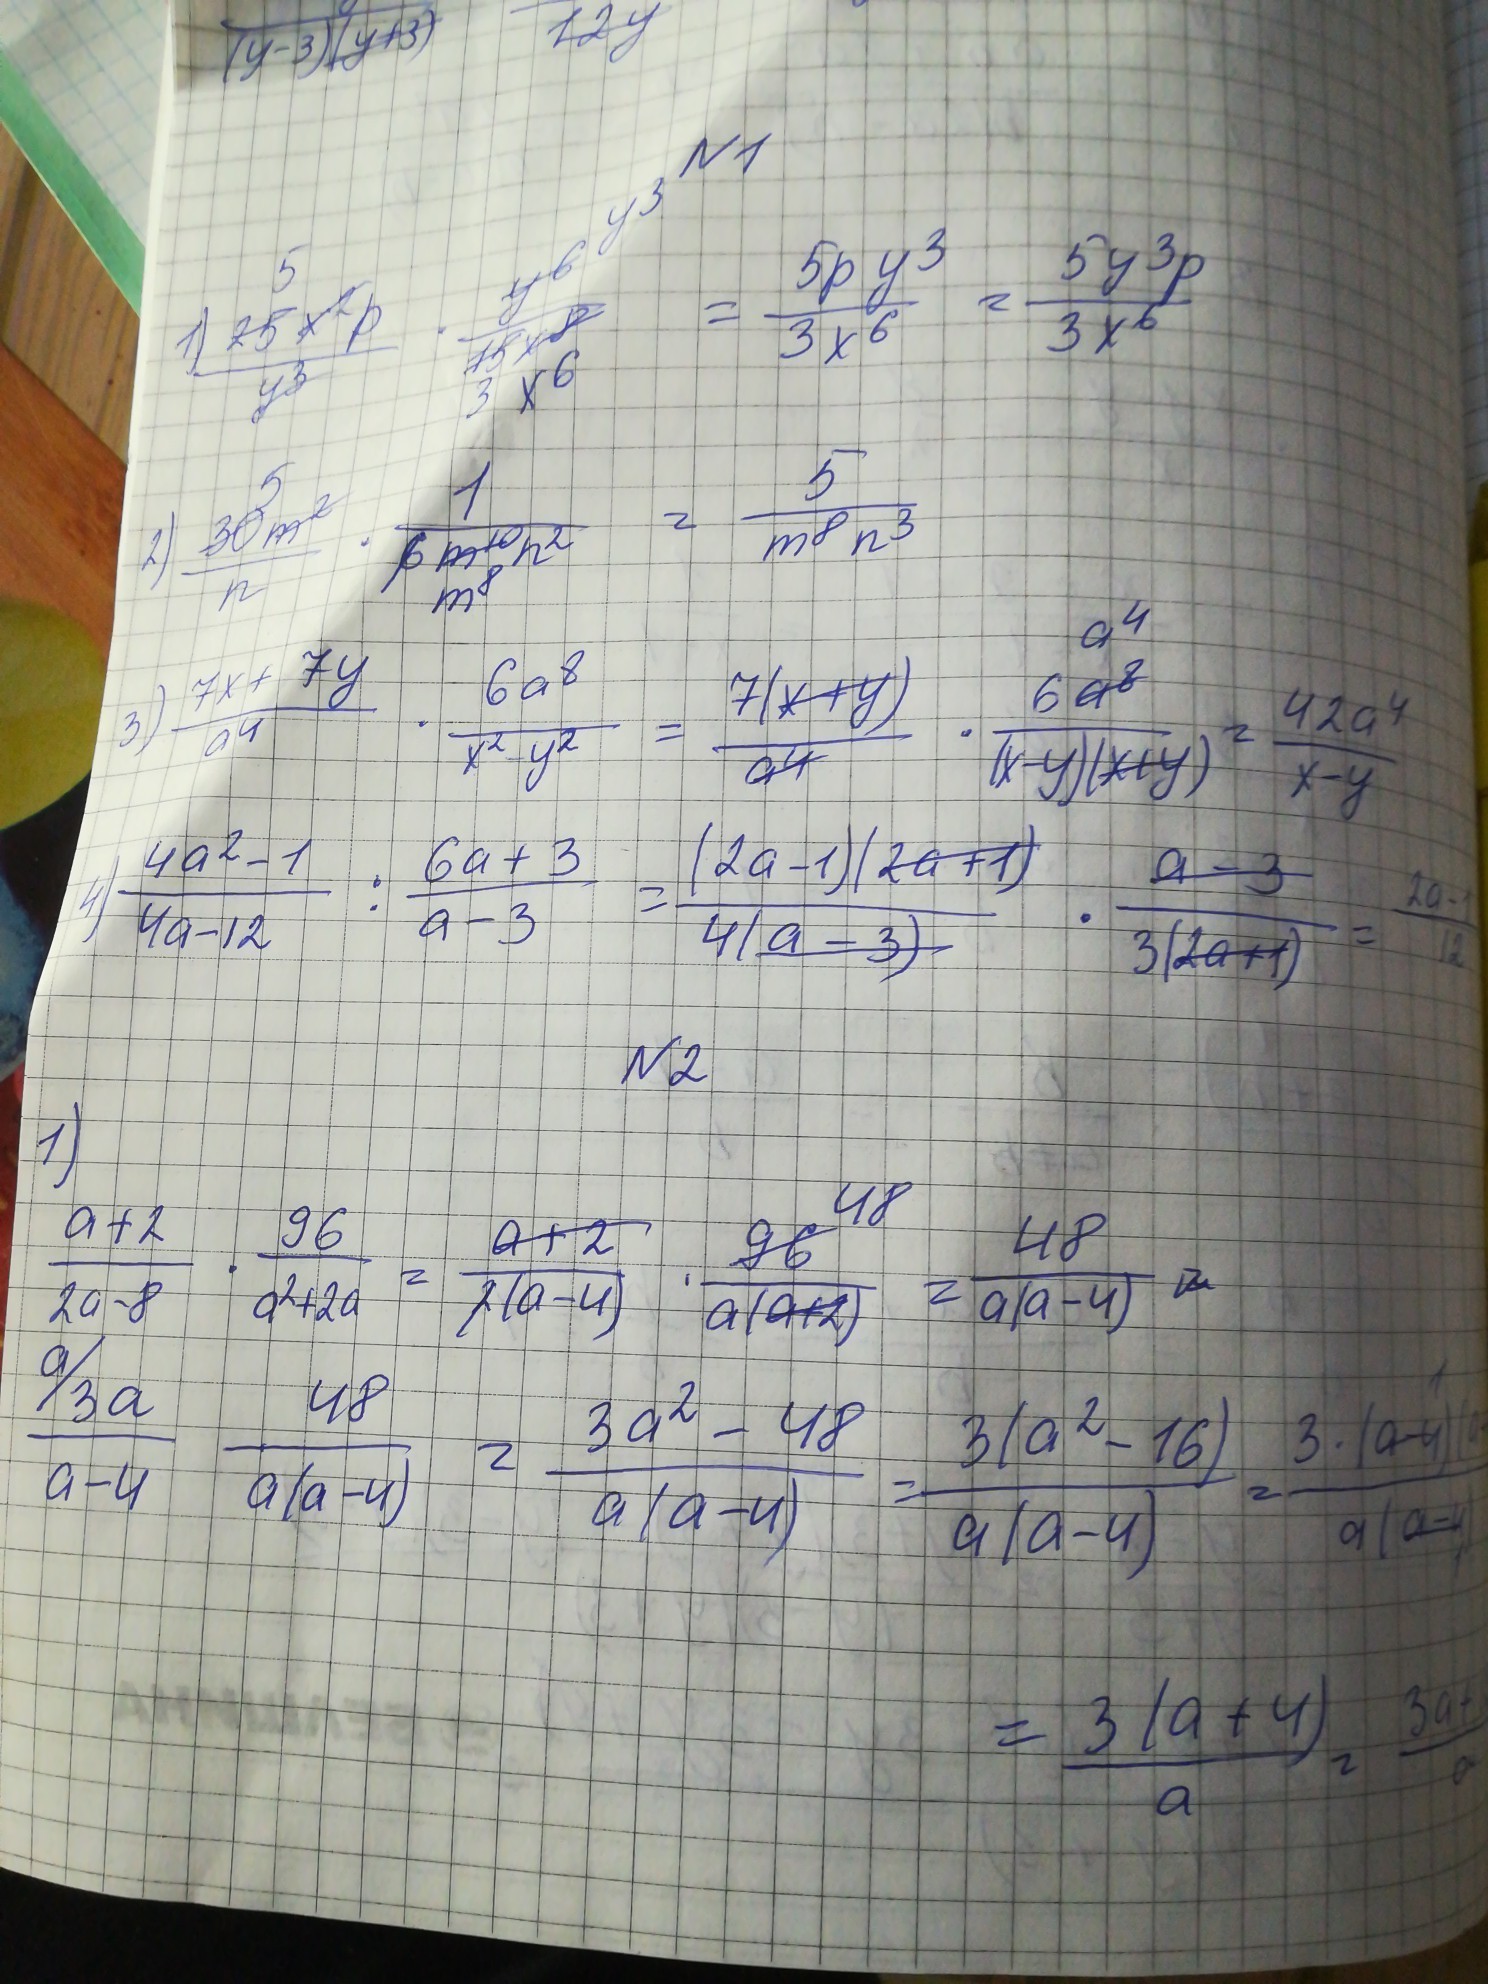 (y-3)(y+3) 12y
N1
1) 25x²p/y³ · y⁶/15x⁸ = 5py³/3x⁶ = 5y³p/3x⁶
5 y³ 3 x⁶
2) 30m²/n · 1/6m¹⁰n² = 5/m⁸n³
5 m⁸
3) 7x+7y/a⁴ · 6a⁸/x²-y² = 7(x+y)/a⁴ · 6a⁸/(x-y)(x+y) = 42a⁴/x-y
a⁴
4) 4a²-1/4a-12 : 6a+3/a-3 = (2a-1)(2a+1)/4(a-3) · a-3/3(2a+1) = 2a-1/12
N2
1)
a+2/2a-8 · 96/a²+2a = a+2/2(a-4) · 96/a(a+2) = 48/a(a-4)
48
a/ 3a/a-4 48/a(a-4) = 3a²-48/a(a-4) = 3(a²-16)/a(a-4) = 3·(a-4)/a(a-4)
= 3(a+4)/a = 3a+